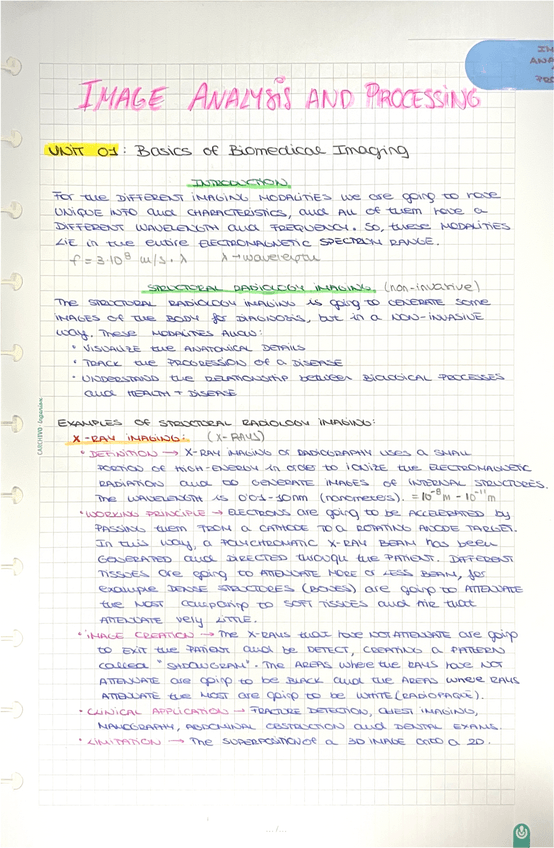 IMAGE ANALYSIS AND PROCESSING
UNIT 01: Basics of Biomedical Imaging
INTRODUCTION
FOR the DIFFERENT IMAGING MODALITIES we are going to have
UNIQUE INFO and CHARACTERISTICS, and ALL OF them HAVE a
DIFFERENT WAVELENGTH and FREQUENCY. SO, these MODALITIES
LIE in the entire ELECTROMAGNETIC SPECTRUM RANGE.
f = 3·10⁸ m/s · λ λ → wavelength
STRUCTURAL RADIOLOGY IMAGING (non-invasive)
The STRUCTURAL RADIOLOGY IMAGING is going to GENERATE some
IMAGES OF the BODY for DIAGNOSIS, but in a NON-INVASIVE
way. These MODALITIES ALLOW:
· VISUALIZE the ANATOMICAL DETAILS
· TRACK the PROGRESSION OF a DISEASE
· UNDERSTAND the RELATIONSHIP between BIOLOGICAL PROCESSES
and HEALTH + DISEASE
EXAMPLES OF STRUCTURAL RADIOLOGY IMAGING:
X-RAY IMAGING: (X-RAYS)
· DEFINITION → X-RAY IMAGING or RADIOGRAPHY USES a SMALL
PORTION OF HIGH-ENERGY in order to IONIZE the ELECTROMAGNETIC
RADIATION and to GENERATE IMAGES OF INTERNAL STRUCTURES.
The WAVELENGTH is 0'01-10nm (nanometers). = 10⁻⁸m - 10⁻¹¹m
· WORKING PRINCIPLE → ELECTRONS are going to be ACCELERATED by
PASSING them FROM a CATHODE TO a ROTATING ANODE TARGET.
In this way, a POLYCHROMATIC X-RAY BEAM has been
GENERATED and DIRECTED through the PATIENT. DIFFERENT
TISSUES are going to ATTENUATE MORE or LESS BEAM, for
example DENSE STRUCTURES (BONES) are going to ATTENUATE
the MOST comparing to SOFT TISSUES and AIR that
ATTENUATE very LITTLE.
· IMAGE CREATION → The X-RAYS that have NOT ATTENUATE are going
to EXIT the PATIENT and be DETECT, CREATING a PATTERN
called "SHADOWGRAM". The AREAS where the RAYS have NOT
ATTENUATE are going to be BLACK and the AREAS where RAYS
ATTENUATE the MOST are going to be WHITE (RADIOPAQUE).
· CLINICAL APPLICATION → FRACTURE DETECTION, CHEST IMAGING,
MAMOGRAPHY, ABDOMINAL OBSTRUCTION and DENTAL EXAMS.
· LIMITATION → The SUPERPOSITION OF a 3D IMAGE ONTO a 2D.